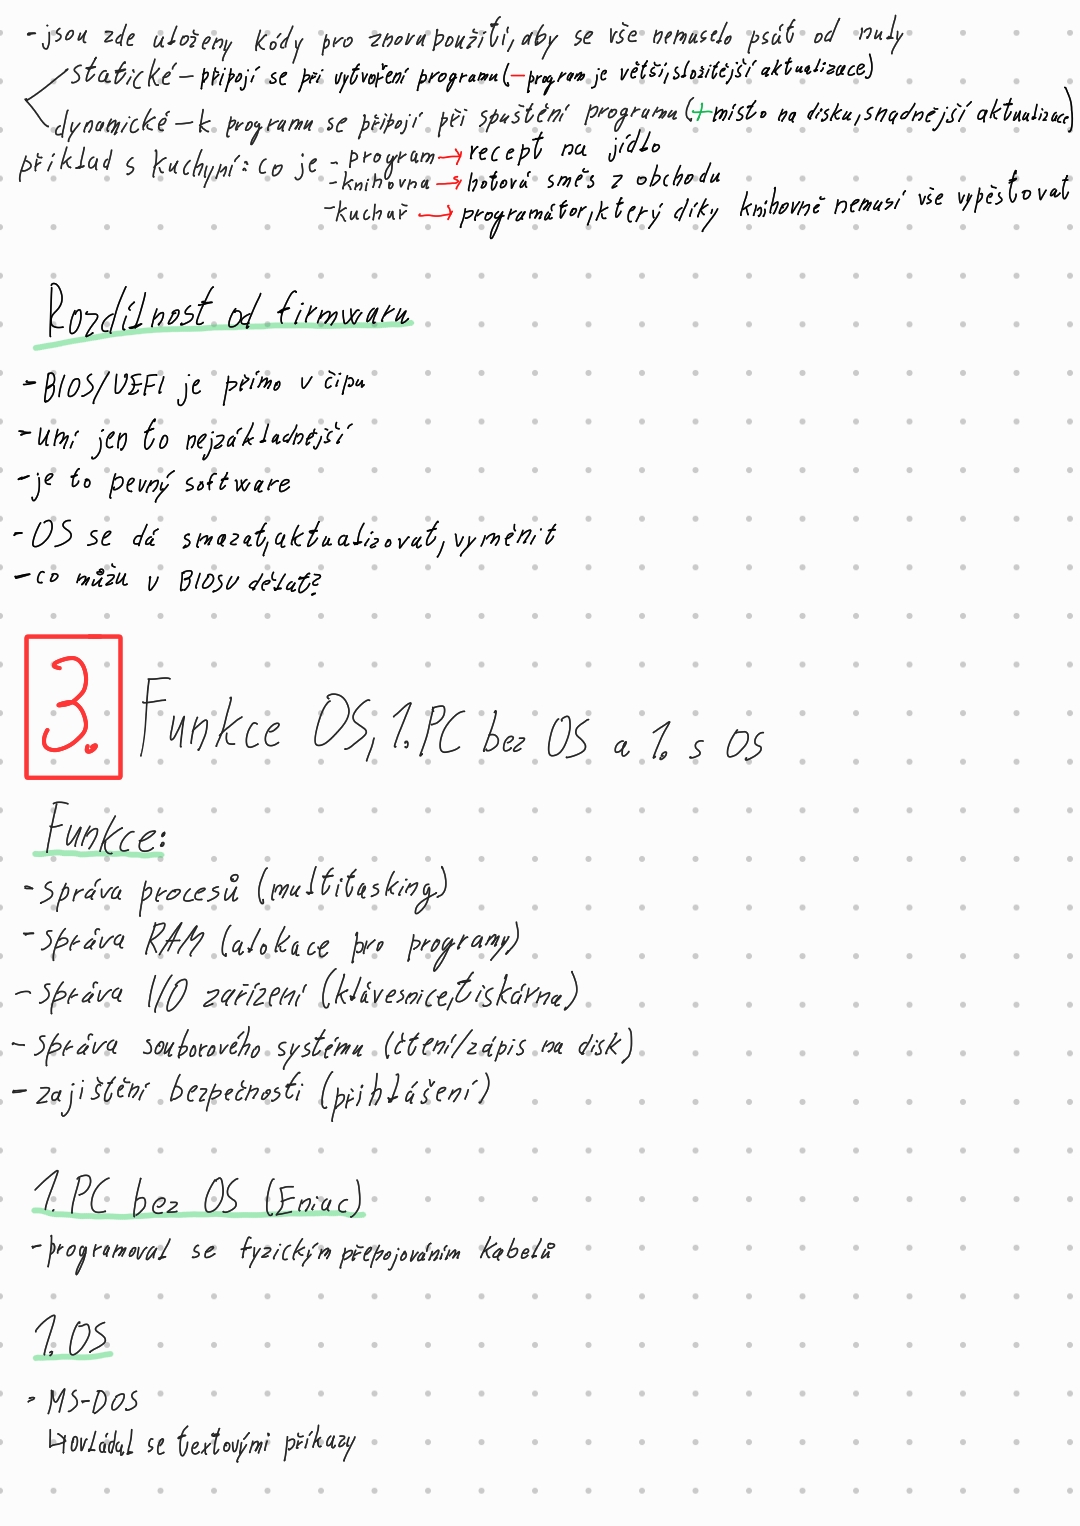 -jsou zde uloženy kódy pro znovupoužití, aby se vše nemuselo psát od nuly
statické – připojí se při vytvoření programu (– program je větší, složitější aktualizace)
dynamické – k programu se připojí při spuštění programu (+ místo na disku, snadnější aktualizace)
příklad s kuchyní: co je - program → recept na jídlo
-knihovna → hotová směs z obchodu
-kuchař → programátor, který díky knihovně nemusí vše vypěstovat
Rozdílnost od firmwaru
-BIOS/UEFI je přímo v čipu
-umí jen to nejzákladnější
-je to pevný software
-OS se dá smazat, aktualizovat, vyměnit
-co můžu v BIOSU dělat?
3. Funkce OS, 1. PC bez OS a 1. s OS
Funkce:
-správa procesů (multitasking)
-správa RAM (alokace pro programy)
-správa I/O zařízení (klávesnice, tiskárna)
-správa souborového systému (čtení/zápis na disk)
-zajištění bezpečnosti (přihlášení)
1. PC bez OS (Eniac)
-programoval se fyzickým přepojováním kabelů
1. OS
- MS-DOS
↳ ovládal se textovými příkazy